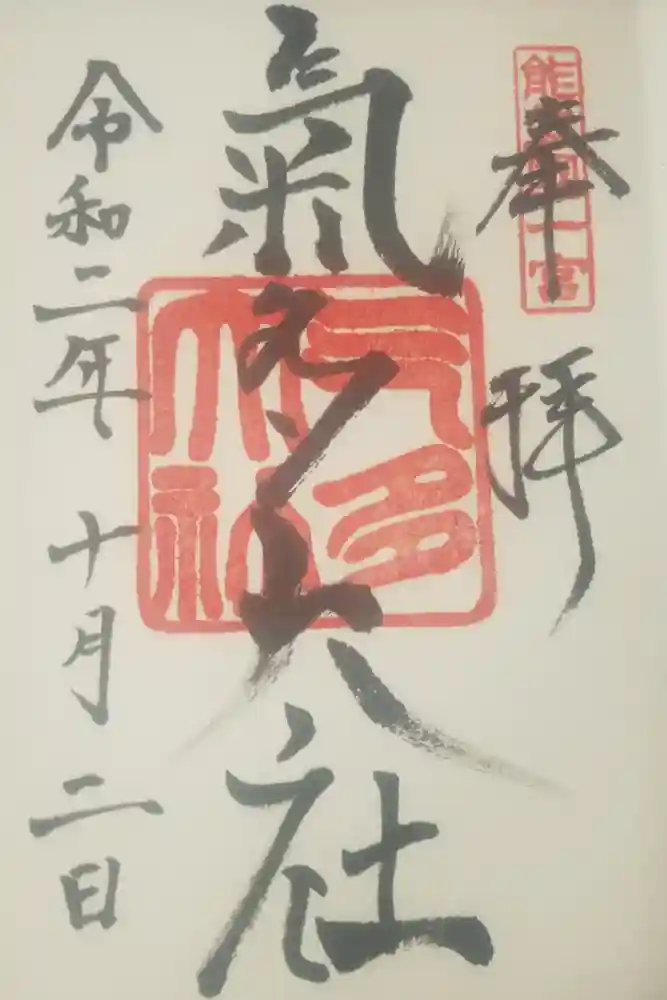 能登國一宮
奉拝
氣多大社
气多大社
令和二年十月二日